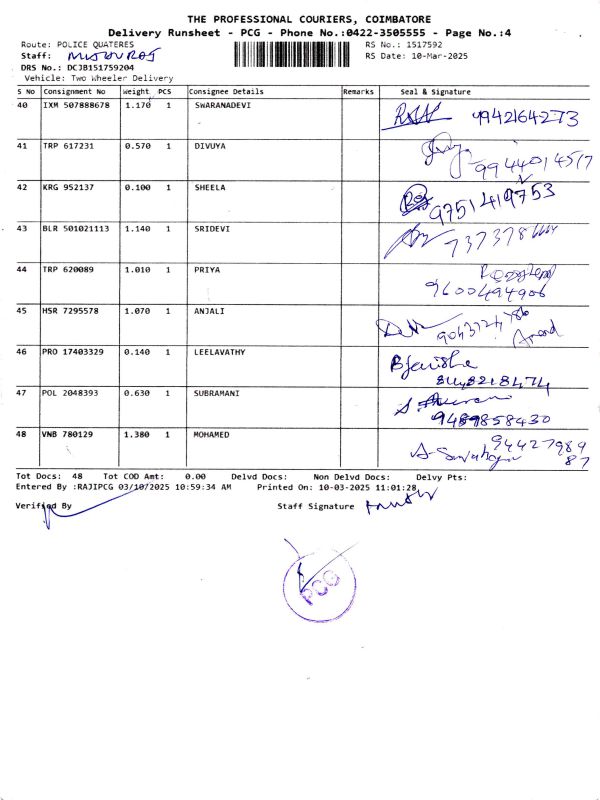 THE PROFESSIONAL COURIERS, COIMBATORE
Delivery Runsheet - PCG - Phone No.:0422-3505555 - Page No.:4
Route: POLICE QUATERES RS No.: 1517592
Staff: RS Date: 10-Mar-2025
DRS No.: DCJB151759204
Vehicle: Two Wheeler Delivery
S No Consignment No Weight PCS Consignee Details Remarks Seal & Signature
40 IXM 507888678 1.170 1 SWARANADEVI 9942164273
41 TRP 617231 0.570 1 DIVUYA 9944014517
42 KRG 952137 0.100 1 SHEELA 9751419753
43 BLR 501021113 1.140 1 SRIDEVI
44 TRP 620089 1.010 1 PRIYA 9600494906
45 HSR 7295578 1.070 1 ANJALI Anand
46 PRO 17403329 0.140 1 LEELAVATHY
47 POL 2048393 0.630 1 SUBRAMANI 9489858430
48 VNB 780129 1.380 1 MOHAMED 94427989
87
Tot Docs: 48 Tot COD Amt: 0.00 Delvd Docs: Non Delvd Docs: Delvy Pts:
Entered By :RAJIPCG 03/10/2025 10:59:34 AM Printed On: 10-03-2025 11:01:28
Verified By Staff Signature
PCG